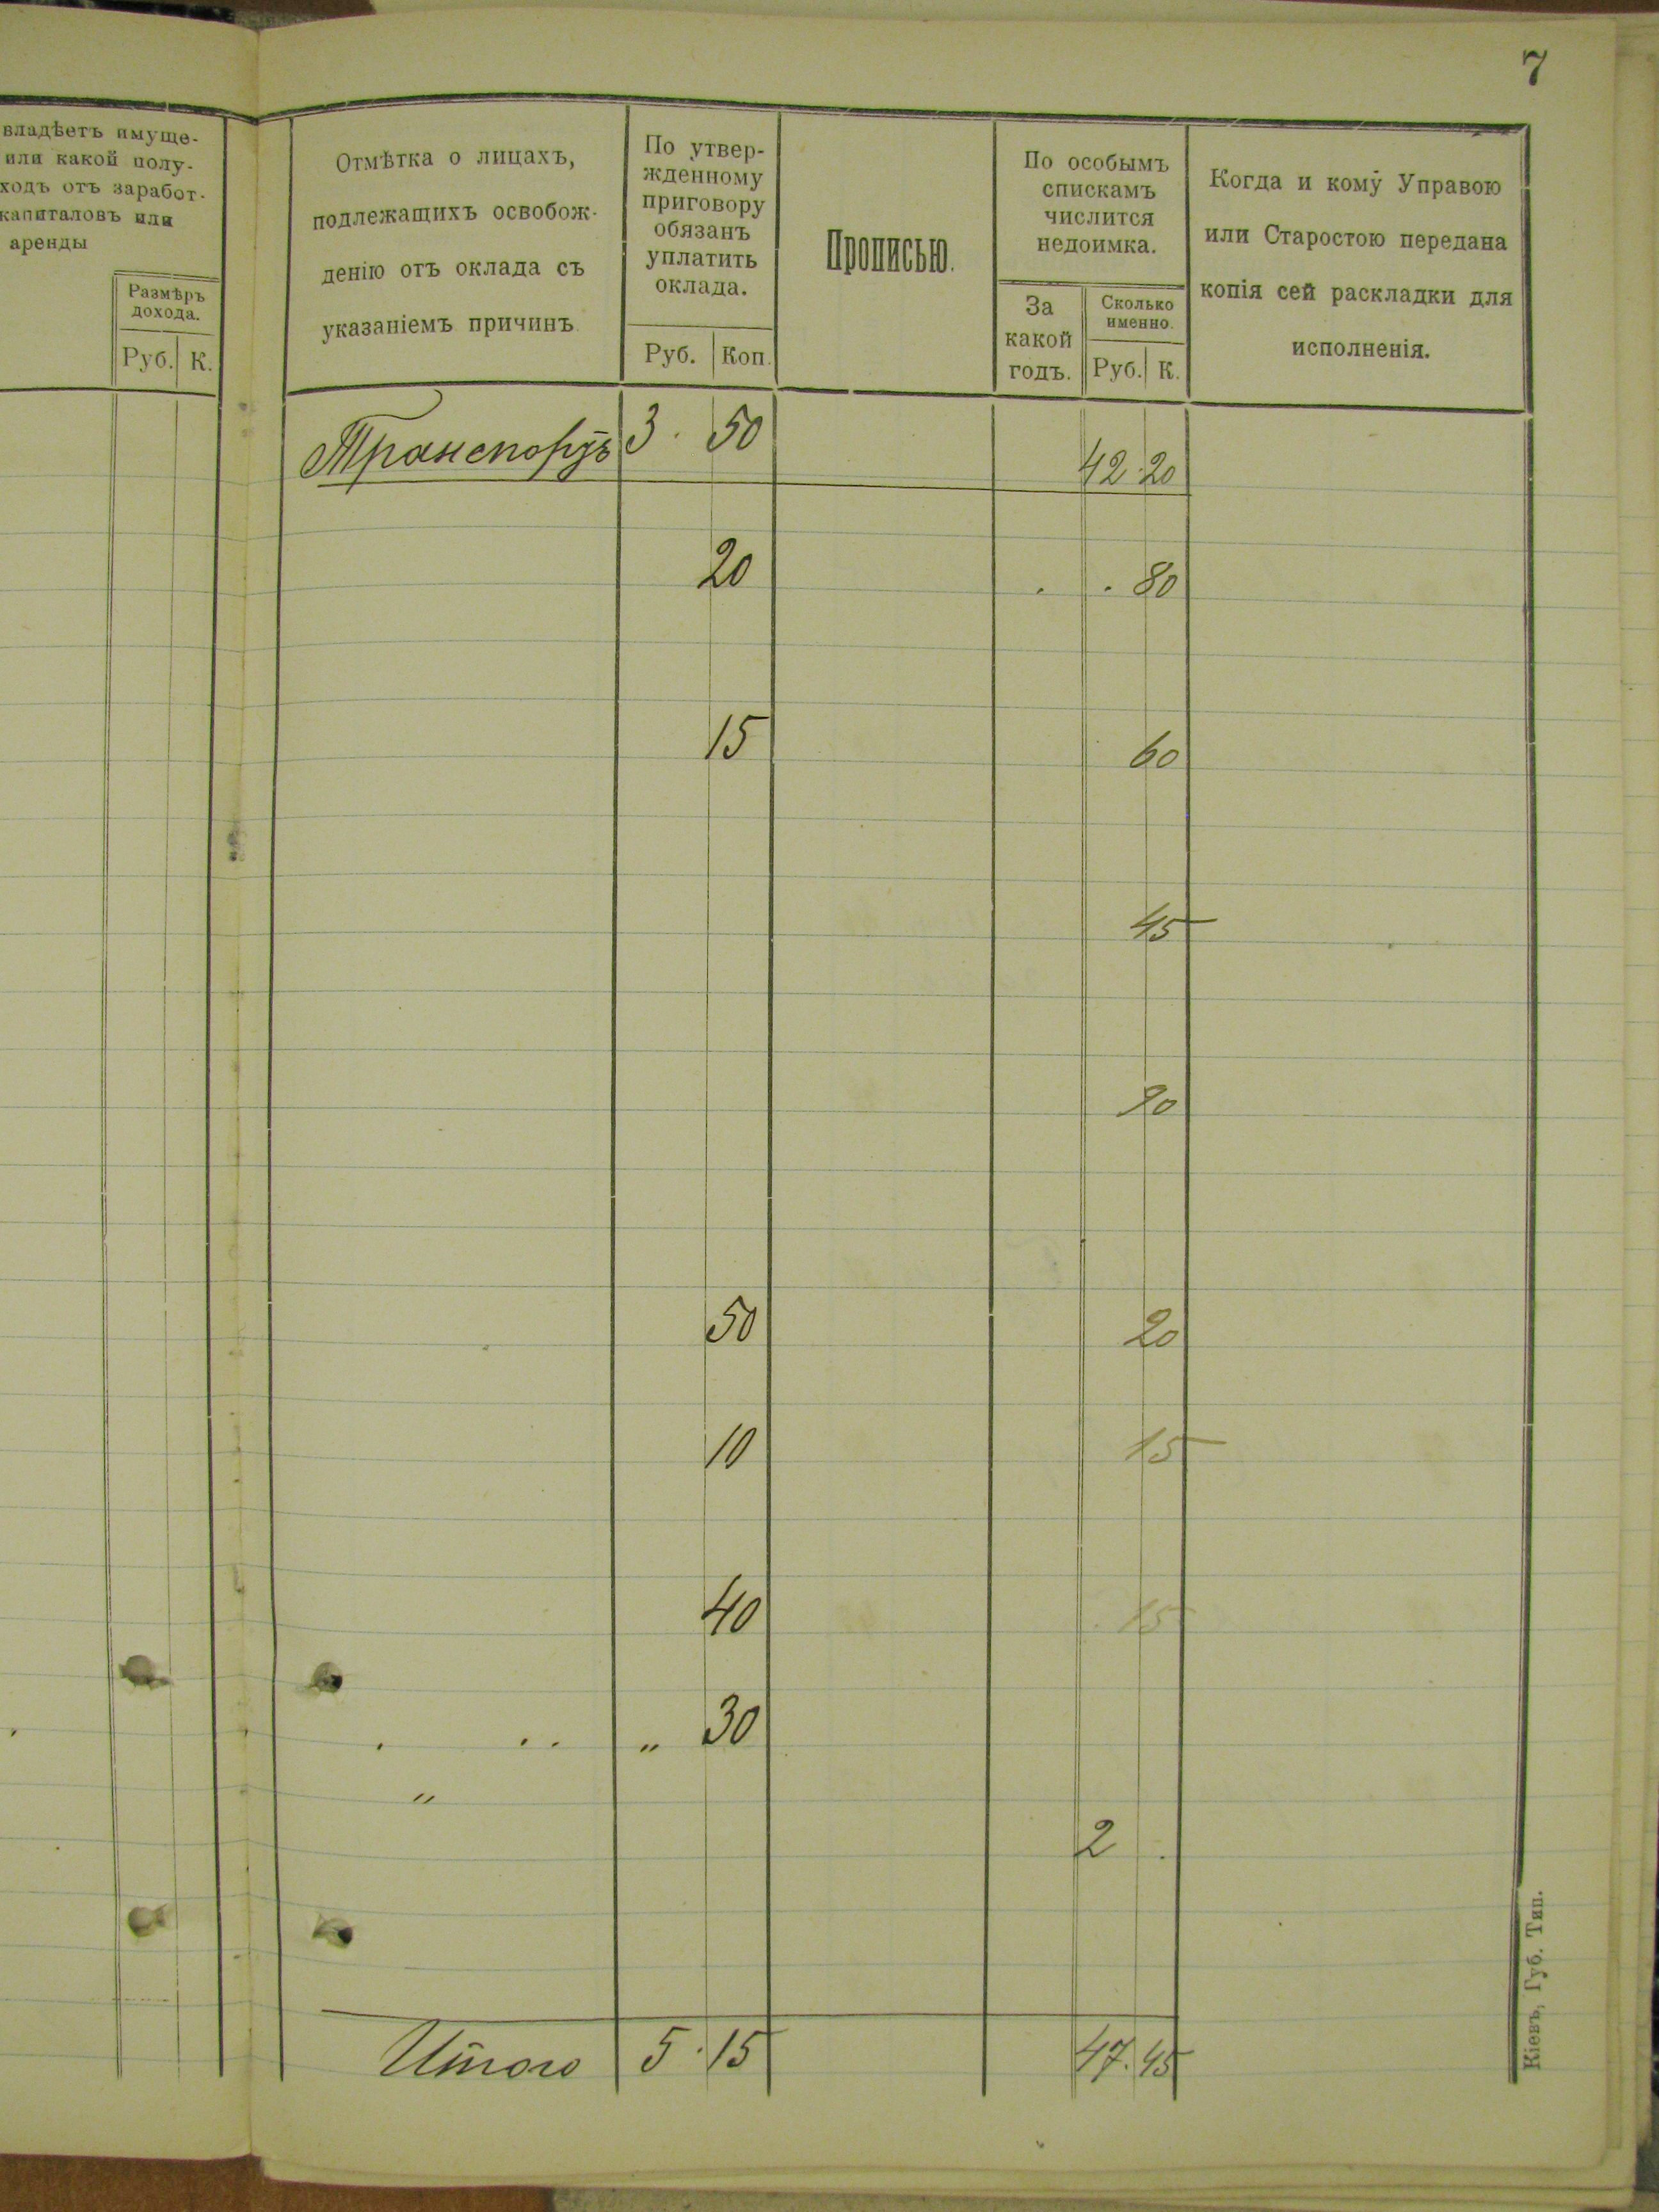 7
владѣетъ имуще-
или какой полу-
ходъ отъ заработ-
капиталовъ или
аренды
Размѣръ
дохода.
Руб. К.
Отмѣтка о лицахъ,
подлежащихъ освобож-
денію отъ оклада съ
указаніемъ причинъ
По утвер-
жденному
приговору
обязанъ
уплатить
оклада.
Руб. Коп.
Прописью.
По особымъ
спискамъ
числится
недоимка.
За
какой
годъ.
Сколько
именно.
Руб. К.
Когда и кому Управою
или Старостою передана
копія сей раскладки для
исполненія.
Транспортъ 3 . 50 42 . 20
20 . . 80
15 60
45
90
50 20
10 15
40 15
. . . „ 30
„
2 .
Итого 5 . 15 47 . 45
Кіевъ, Губ. Тип.